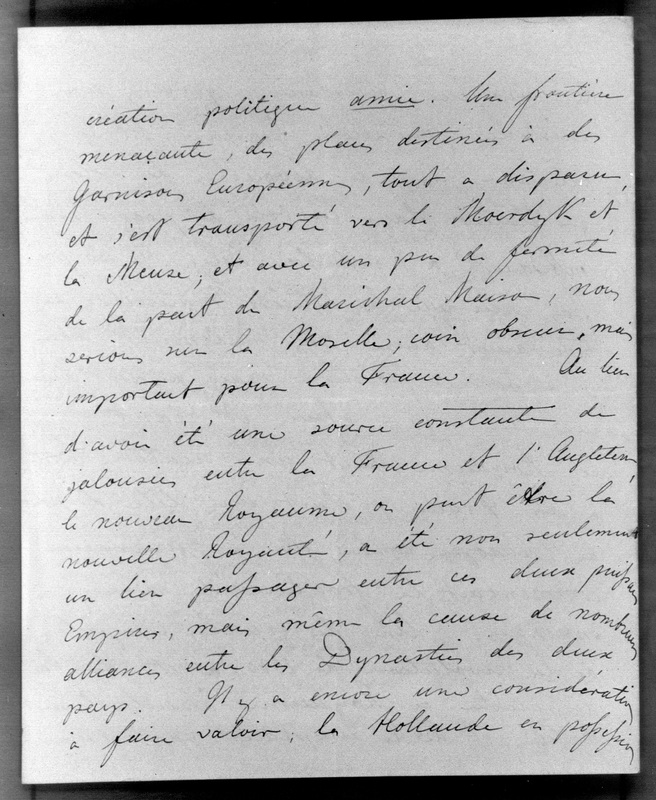 création politique amie. Une frontière
menaçante, des places destinées à des
Garnisons Européennes, tout a disparu,
et s'est transporté vers le Moerdyk et
la Meuse; et avec un peu de fermeté
de la part du Maréchal Maison, nous
serions sur la Moselle; coin obscur, mais
important pour la France. Au lieu
d'avoir été une source constante de
jalousies entre la France et l'Angleterre,
le nouveau Royaume, ou peut être la
nouvelle Royauté, a été non seulement
un lien passager entre ces deux puissans
Empires, mais même la cause de nombreuses
alliances entre les Dynasties des deux
pays. Il y a encore une considération
à faire valoir; la Hollande en possession